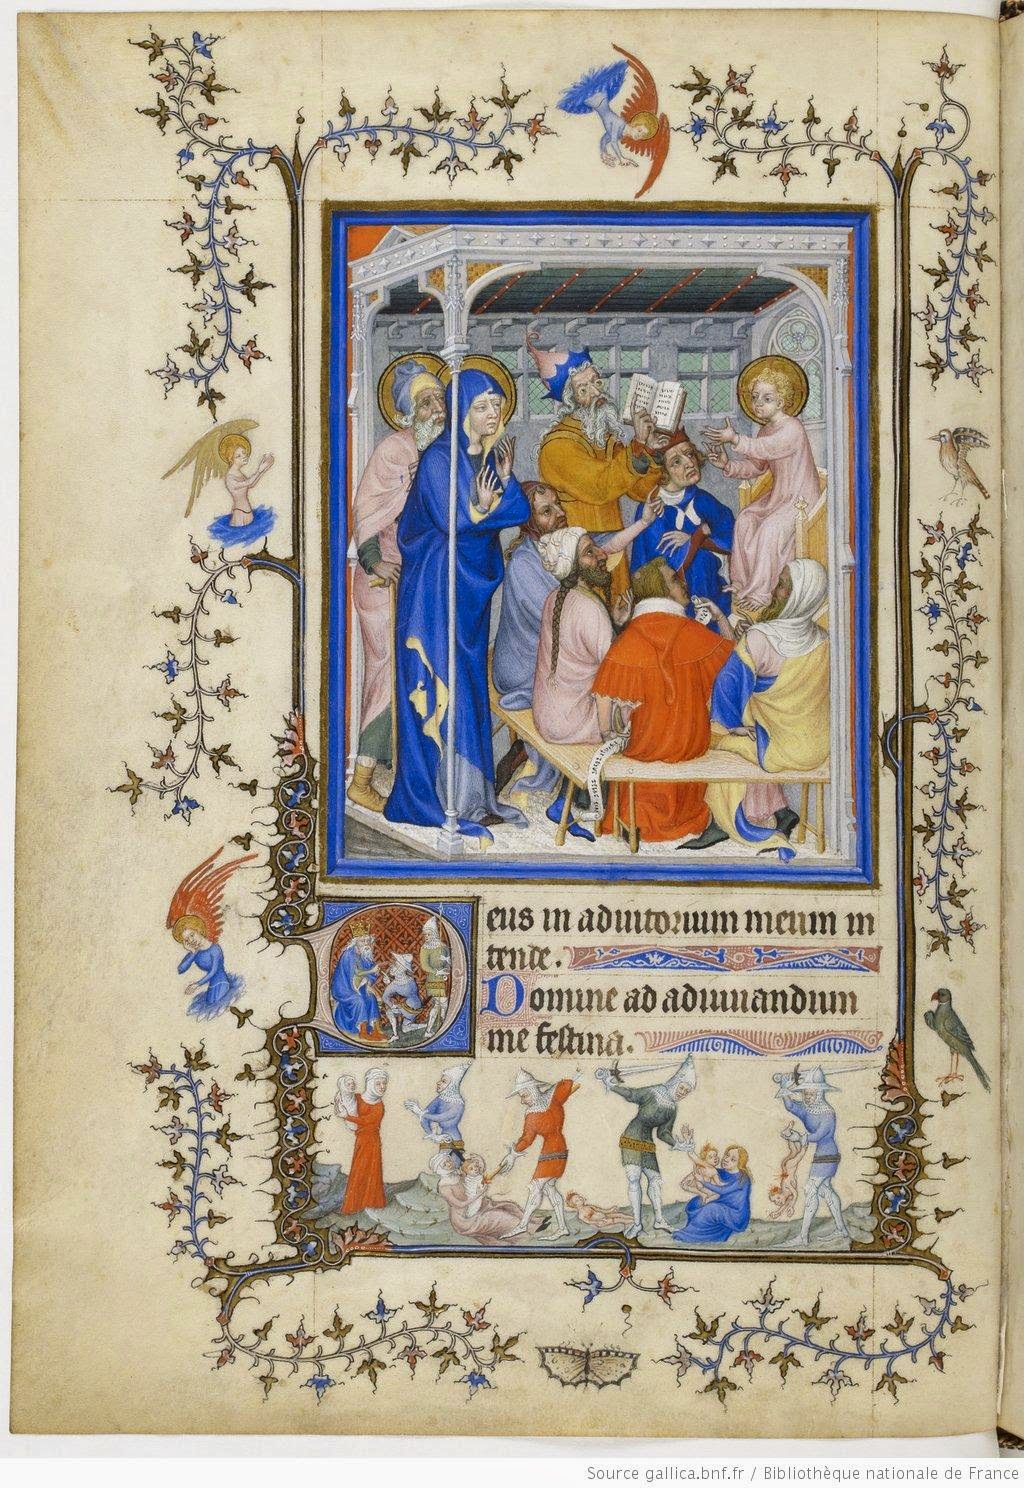 eus in adiutorium meum in
tende.
Domine ad adiuuandum
me festina.
Source gallica.bnf.fr / Bibliothèque nationale de France